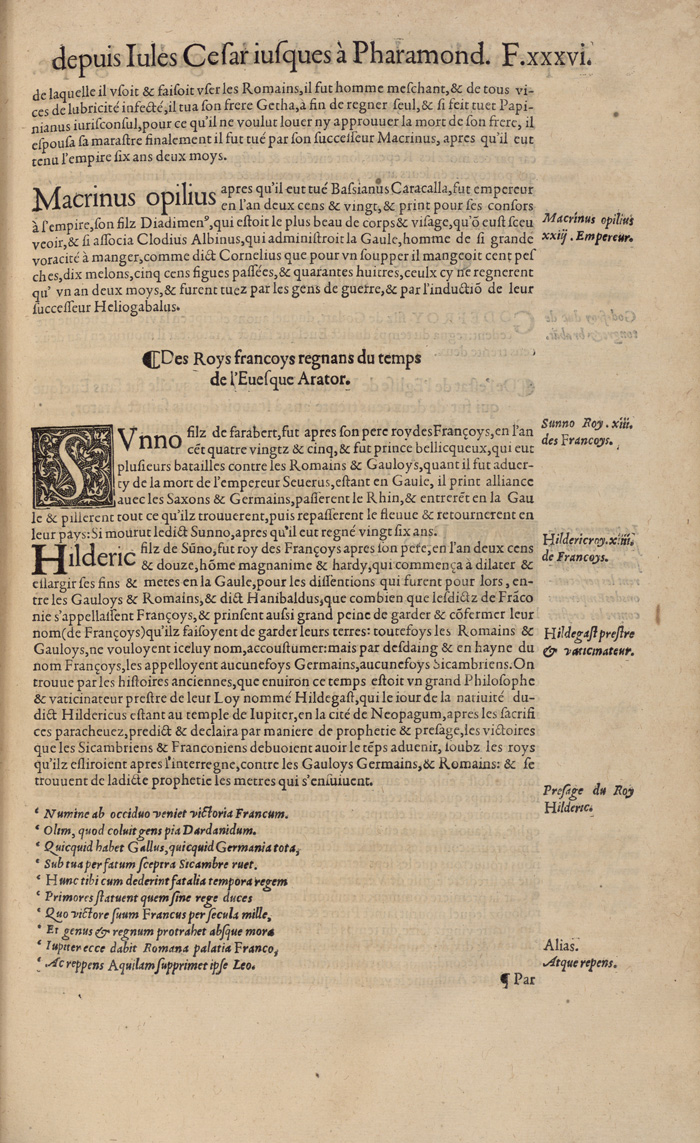 depuis Iules Cesar iusques à Pharamond. F.xxxvi.
de laquelle il vsoit & faisoit vser les Romains, il fut homme meschant, & de tous vi-
ces de lubricité infecté, il tua son frere Getha, à fin de regner seul, & si feit tuer Papi-
nianus iurisconsul, pour ce qu'il ne voulut louer ny approuuer la mort de son frere, il
espousa sa marastre finalement il fut tué par son successeur Macrinus, apres qu'il eut
tenu l'empire six ans deux moys.
Macrinus opilius apres qu'il eut tué Bassianus Caracalla, fut empereur
en l'an deux cens & vingt, & print pour ses consors
à l'empire, son filz Diadimenꝰ, qui estoit le plus beau de corps & visage, qu'õ eust sceu
veoir, & si associa Clodius Albinus, qui administroit la Gaule, homme de si grande
voracité à manger, comme dict Cornelius que pour vn soupper il mangeoit cent pes
ches, dix melons, cinq cens figues passées, & quarantes huitres, ceulx cy ne regnerent
qu' vn an deux moys, & furent tuez par les gens de guerre, & par l'inductiõ de leur
successeur Heliogabalus.
Macrinus opilius
xxiij. Empereur.
¶Des Roys francoys regnans du temps
de l'Euesque Arator.
SVnno filz de farabert, fut apres son pere roy des Françoys, en l'an
cẽt quatre vingtz & cinq, & fut prince bellicqueux, qui eut
plusieurs batailles contre les Romains & Gauloys, quant il fut aduer-
ty de la mort de l'empereur Seuerus, estant en Gaule, il print alliance
auec les Saxons & Germains, passerent le Rhin, & entrerẽt en la Gau
le & pillerent tout ce qu'ilz trouuerent, puis repasserent le fleuue & retournerent en
leur pays: Si mourut ledict Sunno, apres qu'il eut regné vingt six ans.
Sunno Roy. xiii.
des Francoys.
Hilderic filz de Sũno, fut roy des Françoys apres son pere, en l'an deux cens
& douze, hõme magnanime & hardy, qui commença à dilater &
eslargir ses fins & metes en la Gaule, pour les dissentions qui furent pour lors, en-
tre les Gauloys & Romains, & dict Hanibaldus, que combien que lesdictz de Frãco
nie s'appellassent Françoys, & prinsent aussi grand peine de garder & cõfermer leur
nom (de Françoys) qu'ilz faisoyent de garder leurs terres: toutesfoys les Romains &
Gauloys, ne vouloyent iceluy nom, accoustumer: mais par desdaing & en hayne du
nom Françoys, les appelloyent aucunefoys Germains, aucunefoys Sicambriens. On
trouue par les histoires anciennes, que enuiron ce temps estoit vn grand Philosophe
& vaticinateur prestre de leur Loy nommé Hildegast, qui le iour de la natiuité du-
dict Hildericus estant au temple de Iupiter, en la cité de Neopagum, apres les sacrifi
ces paracheuez, predict & declaira par maniere de prophetie & presage, les victoires
que les Sicambriens & Franconiens debuoient auoir le tẽps aduenir, soubz les roys
qu'ilz esliroient apres l'interregne, contre les Gauloys Germains, & Romains: & se
trouuent de ladicte prophetie les metres qui s'ensuiuent.
Hildericroy. xiiii.
de Francoys.
Hildegast prestre
& vaticinateur.
Presage du Roy
Hilderic.
‘ Numine ab occiduo veniet victoria Francum.
‘ Olim, quod coluit gens pia Dardanidum.
‘ Quicquid habet Gallus, quicquid Germania tota,
‘ Sub tua per fatum sceptra Sicambre ruet.
‘ Hunc tibi cum dederint fatalia tempora regem
‘ Primores statuent quem sine rege duces
‘ Quo victore suum Francus per secula mille,
‘ Et genus & regnum protrahet absque mora
‘ Iupiter ecce dabit Romana palatia Franco,
‘ Ac reppens Aquilam supprimet ipse Leo.
Alias.
Atque repens.
¶ Par